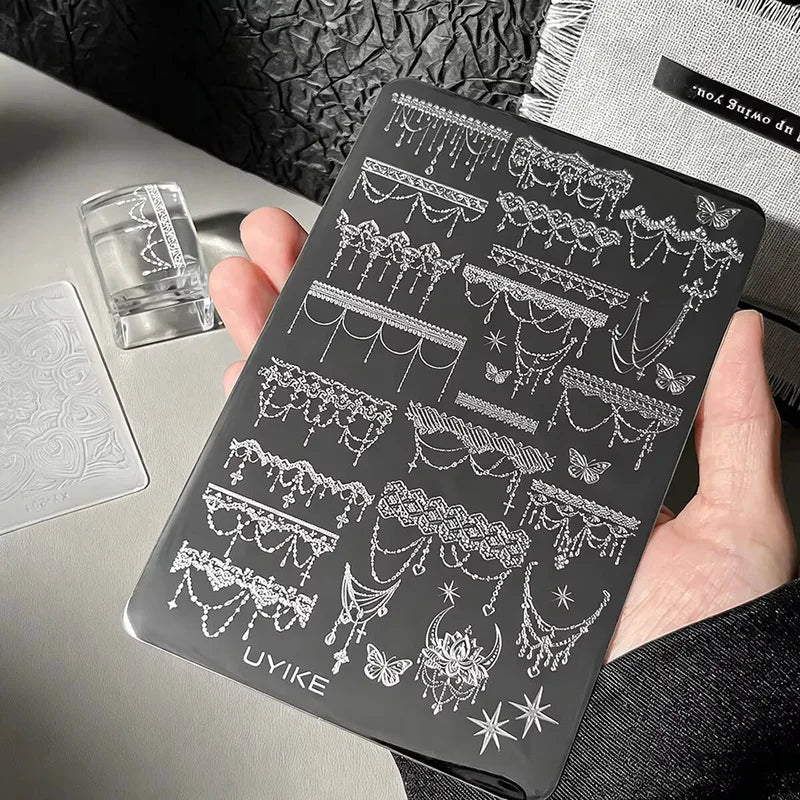 d up owing you.
UYIKE